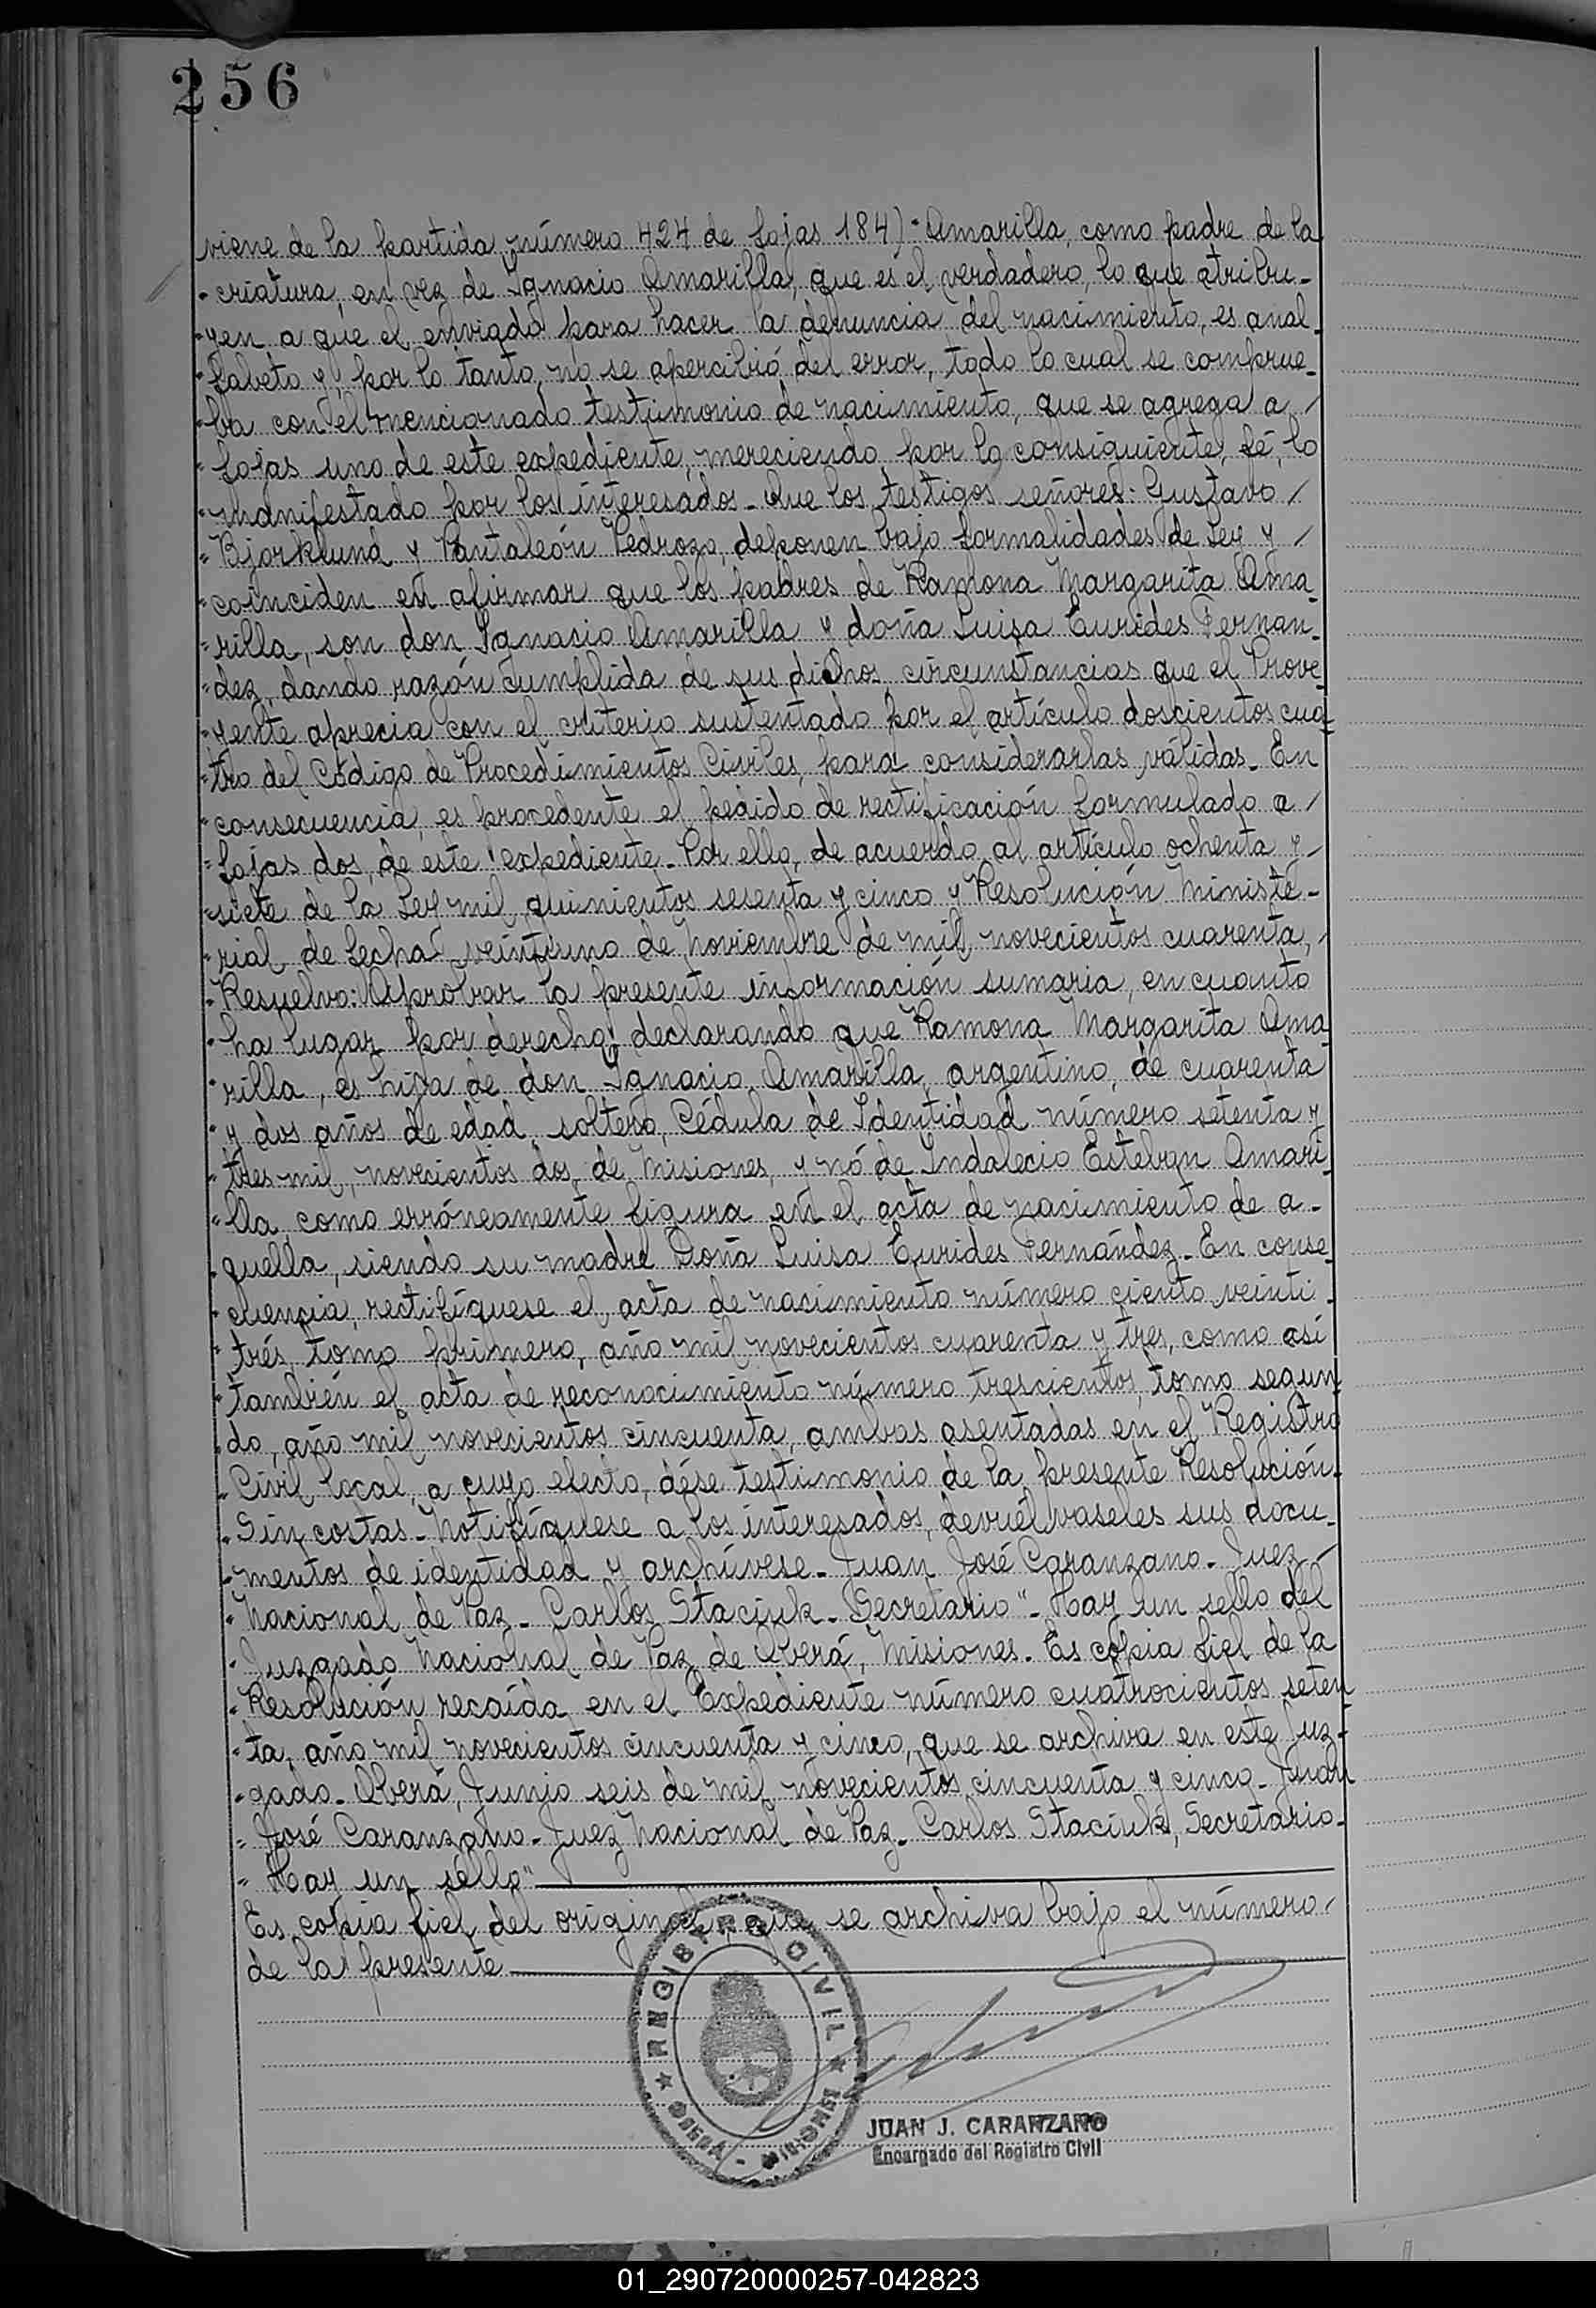 256
viene de la partida número 424 de fojas 184)-Amarilla, como padre de la
"criatura, en vez de Ignacio Amarilla, que es el verdadero, lo que atribu-
"yen a que el enviado para hacer la denuncia del nacimiento, es anal-
"fabeto y, por lo tanto, no se apercibió del error, todo lo cual se comprue-
"ba con el mencionado testimonio de nacimiento, que se agrega a /
"fojas uno de este expediente, mereciendo, por lo consiguiente, fé, lo
"manifestado por los interesados.- Que los testigos señores: Gustavo /
"Bjorklund y Pantaleón Pedrozo, deponen bajo formalidades de Ley y /
"coinciden en afirmar que los padres de Ramona Margarita Ama-
"rilla, son don Ignacio Amarilla y doña Luisa Eurides Fernan-
"dez, dando razón cumplida de sus dichos, circunstancias que el Prove-
"yente aprecia con el criterio sustentado por el artículo doscientos cua-
"tro del Código de Procedimientos Civiles, para considerarlas válidas.- En
"consecuencia, es procedente el pedido de rectificación formulado a /
"fojas dos, de este expediente.- Por ello, de acuerdo al artículo ochenta y /
"siete de la Ley mil quinientos sesenta y cinco y Resolución Ministe-
"rial de fecha veintiuno de Noviembre de mil novecientos cuarenta, /
"Resuelvo: Aprobar la presente información sumaria, en cuanto
"ha lugar por derecho, declarando que Ramona Margarita Ama
"rilla, es hija de don Ignacio Amarilla, argentino, de cuarenta
"y dos años de edad, soltero, Cédula de Identidad número setenta y
"tres mil, novecientos dos, de Misiones, y nó de Indalecio Esteban Amari
"lla, como erróneamente figura en el acta de nacimiento de a-
"quella, siendo su madre Doña Luisa Eurides Fernández.- En conse-
"cuencia, rectifíquese el acta de nacimiento número ciento veinti-
"trés, tomo primero, año mil novecientos cuarenta y tres, como así
"también el acta de reconocimiento número trescientos, tomo segun
"do, año mil novecientos cincuenta, ambas asentadas en el Registro
"Civil local, a cuyo efecto, dése testimonio de la presente Resolución.
"Sin costas.- Notifíquese a los interesados, devuélvaseles sus docu-
"mentos de identidad y archívese.- Juan José Caranzano.- Juez /
"Nacional de Paz.- Carlos Staciuk.- Secretario".- Hay un sello del
"Juzgado Nacional de Paz de Oberá, Misiones.- Es copia fiel de la
"Resolución recaída en el Expediente número cuatrocientos seten
"ta, año mil novecientos cincuenta y cinco, que se archiva en este Juz-
"gado.- Oberá, Junio seis de mil novecientos cincuenta y cinco.- Juan
"José Caranzano.- Juez Nacional de Paz.- Carlos Staciuk, Secretario.-
"Hay un sello"
Es copia fiel del original, que se archiva bajo el número /
de la presente
REGISTRO CIVIL
OBERÁ - MISIONES
JUAN J. CARANZANO
Encargado del Registro Civil
01_290720000257-042823